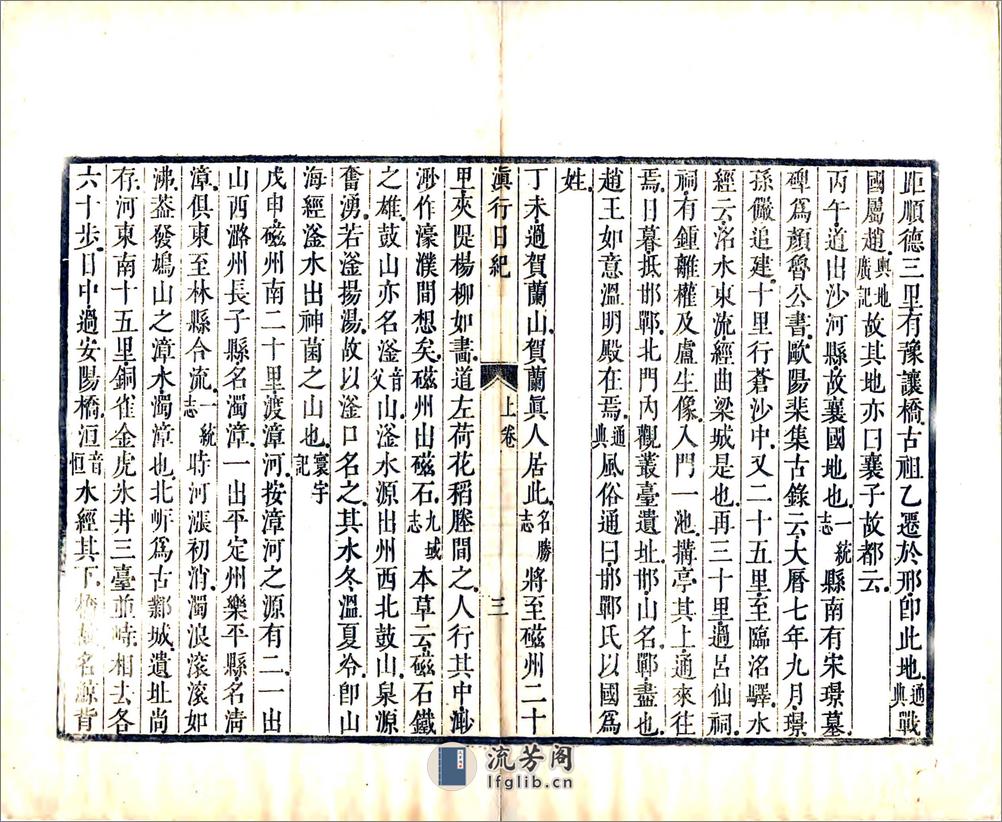 距順德三里有豫讓橋古祖乙遷於邢卽此地通典戰
國屬趙輿地廣記故其地亦曰襄子故都云
丙午道出沙河縣故襄國地也一統志縣南有宋璟墓
碑爲顏魯公書歐陽棐集古錄云大曆七年九月璟
孫儼追建十里行蒼沙中又二十五里至臨洺驛水
經云洺水東流經曲梁城是也再三十里過呂仙祠
祠有鍾離權及盧生像入門一池搆亭其上通來往
焉日暮抵邯鄲北門內觀叢臺遺址邯山名鄲盡也
趙王如意溫明殿在焉通典風俗通曰邯鄲氏以國爲
姓
丁未過賀蘭山賀蘭眞人居此名勝志將至磁州二十
滇行日紀 上卷 三
里夾隄楊柳如畫道左荷花稻塍間之人行其中渺
渺作濠濮間想矣磁州山磁石九域志本草云磁石鐵
之雄鼓山亦名滏音父山滏水源出州西北鼓山泉源
奮湧若滏揚湯故以滏口名之其水冬溫夏冷卽山
海經滏水出神菌之山也寰宇記
戊申磁州南二十里渡漳河按漳河之源有二一出
山西潞州長子縣名濁漳一出平定州樂平縣名淸
漳俱東至林縣合流一統志時河漲初消濁浪滾滾如
沸葢發鳩山之漳水濁漳也北岍爲古鄴城遺址尚
存河東南十五里銅雀金虎氷井三臺並峙相去各
六十步日中過安陽橋洹音恒水經其下橋名鯨背
流芳阁
lfglib.cn